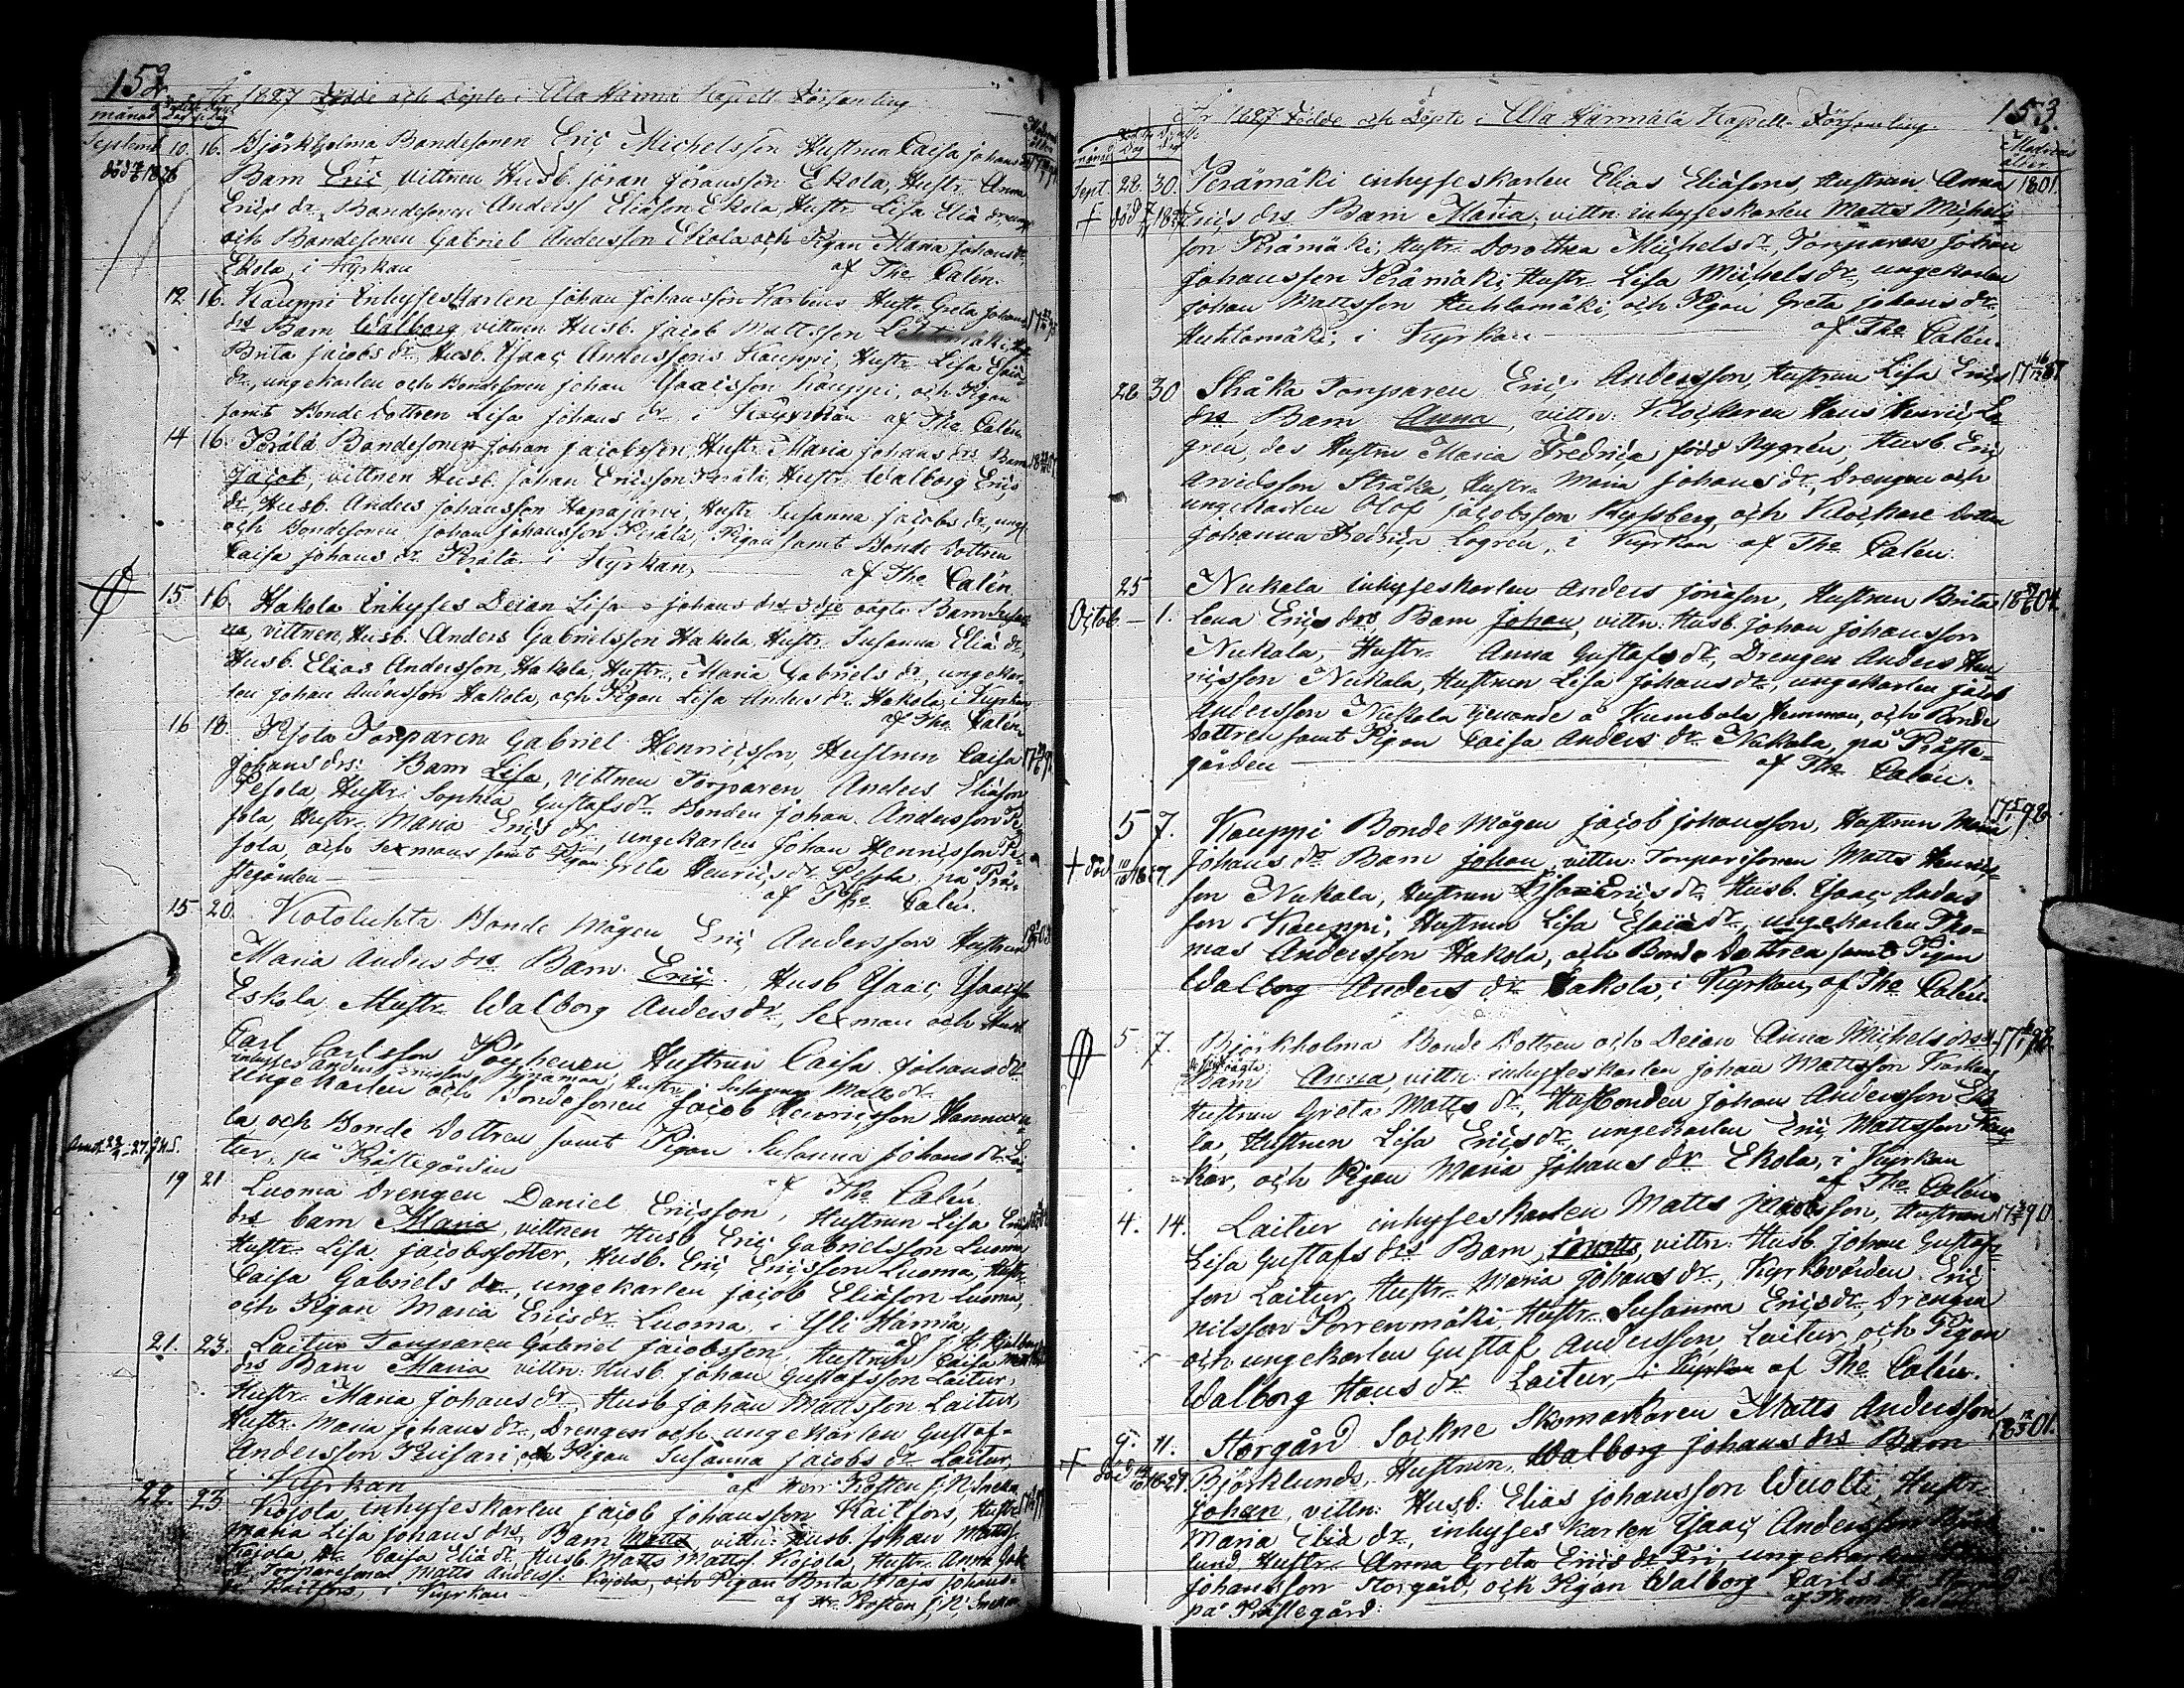 152
År 1827 Födde och Döpte i Ala Härmä Kapell Församling
månad
Septemb 10. 16. Björkholma Bondesonen Eric Michelsson Hustrun Caisa Johans
Barn Eric vittnen Husb. Jöran Jöransson Ekola, Hustr. Anna
Erics dr, Bondesonen Anders Eliason Ekola, Hustr. Lisa Elia dr,
och Bondesonen Gabriel Andersson Ekola, och Pigan Maria Johans dr
Ekola, i Kyrkan af Tho. Calén.
12. 16. Kauppi Inhyseskarlen Johan Johansson Karhus Hustr. Greta Johans
drs Barn Walborg, vittnen Husb. Jacob Mattsson
Brita Jacobs dr, Husb. Ysaac Anderssons Kauppi, Hustr. Lisa Esaiæ
dr, ungekarlen och Bondesonen Johan Ysacsson Kauppi, och Pigan
samt Bonde Dottren Lisa Johans dr i Kyrkan af Tho. Calén
14 16. Perälä Bondesonen Johan Jacobsson, Hustr. Maria Johans drs Barn
Jacob, vittnen Husb. Johan Ericsson Perälä, Hustr. Walborg Erics
dr, Husb. Anders Johansson Haapajärvi, Hustr. Susanna Jacobs dr, ungk
och Bondesonen Johan Johansson Perälä, Pigan samt Bonde Dottren
Caisa Johans dr Perälä i Kyrkan, af Tho. Calén
15. 16. Hakola Inhyses Deian Lisa Johans drs oägta Barn Susan
na, vittnen, Husb. Anders Gabrielsson Hakola, Hustr. Susanna Elia dr,
Husb. Elias Andersson, Hakola, Hustr. Maria Gabriels dr, ungekar
len Johan Andersson Hakola, och Pigan Lisa Anders dr Hakola, i Kyrkan
af Tho. Calén
16 18. Pesola Torparen Gabriel Henricsson, Hustrun Caisa
Johans drs: Barn Lisa, vittnen Torparen Anders Eliason
Pesola, Hustr. Sophia Gustafs dr. Bonden Johan Andersson Pe
sola, Hustr. Maria Erics dr, ungekarlen Johan Henricsson Pe-
sola, och Sexmans samt Pigan Greta Henrics dr Pesola, på Prä-
stegården af Tho. Calén.
15 20. Kotoluhta Bonde Mågen Eric Andersson Hustrun
Maria Anders drs Barn Eric, Husb Ysaac Ysacsson
Eskola, Hustr. Walborg Anders dr, Sexman och Husb
Carl Carlsson Pouhenen, Hustrun Caisa Johans dr
inhyses Anders Ericsson, Hustr. Susanna Matts dr
Ungekarlen och Bondesonen Jacob Henricsson Hannuxe
la, och Bonde Dottren samt Pigan Susanna Johans dr Lai
tur, på Prästegården af Tho. Calén
19 21 Luoma Drengen Daniel Ericsson, Hustrun Lisa Erics
drs barn Maria, vittnen Husb Eric Gabrielsson Luoma
Hustr. Lisa Jacobsdotter, Husb. Eric Ericsson Luoma, Hustr.
Caisa Gabriels dr, ungekarlen Jacob Eliason Luoma,
och Pigan Maria Erics dr Luoma, i Yli Härmä,
21. 23. Laitur Torparen Gabriel Jacobsson, Hustrun Caisa Matts
drs Barn Maria vittn: Husb. Johan Gustafsson Laitur,
Hustr. Maria Johans dr, Husb Johan Mattsson Laitur,
Hustr. Maria Johans dr, Drengen och ungekarlen Gustaf
Andersson Kuisari, och Pigan Susanna Jacobs dr Laitur,
i Kyrkan af Herr Prosten J. N. Snellm
22. 23 Kojola inhyseskarlen Jacob Johansson Kaitfors, Hustr.
Maria Lisa Johans drs, Barn Matts, vittn: Husb. Johan Mattss.
Kojola, Hr. Caisa Elia dr, Husb. Matts Mattss. Kojola, Hustr. Anna Jac
Torparesonen Matts Anderss: Kojola, och Pigan Brita Maja Johans
dr Kaitfors, i Kyrkan af Hr Prosten J. N. Snellm
153.
År 1827 Födde och Döpte i Ala Härmälä Kapell-Församling.
Modrens ålder
Sept. 28. 30. Perämäki inhyseskarlen Elias Eliasons, Hustrun Anna 1801.
Erics drs, Barn Maria, vittn: inhyseskarlen Matts Michels
son Perämäki, Hustr. Dorothea Michels dr, Torparen Johan
Johansson Perämäki, Hustr. Lisa Michels dr, ungekarlen
Johan Mattsson Huhtamäki, och Pigan Greta Johans dr
Huhtamäki, i Kyrkan af Tho. Calén.
28 30 Stråka Torparen Eric Andersson, Hustrun Lisa Erics
drs, Barn Anna, vittn: Klockaren Hans Henric Lo
grén, des Hustru Maria Fredrica född Nygrén, Husb. Eric
Arvidsson Stråka, Hustr. Maria Johans dr, Drengen och
ungekarlen Olof Jacobsson Ryssberg, och Klockare Dottren
Johanna Fredrica Logrén, i Kyrkan af Tho. Calén.
25 Nukala inhyseskarlen Anders Jöransson, Hustrun Brita
Octob. — 1. Lena Erics drs Barn Johan, vittn: Husb. Johan Johansson
Nukala, Hustr. Anna Gustafs dr, Drengen Anders Hen
ricsson Nukala, Hustrun Lisa Johans dr, ungekarlen Jacob
Andersson Nukala tjenande å Kumbola Hemman, och Bonde
Dottren samt Pigan Caisa Anders dr Nukala, på Präste-
gården af Tho. Calén.
5 7. Kauppi Bonde Mågen Jacob Johansson, Hustrun Maria
Johans dr Barn Johan, vittn: Torparesonen Matts Henrics
son Nukala, Hustrun Lisa Erics dr, Husb. Ysaac Anders
son Kauppi, Hustrun Lisa Esaiæ dr, ungekarlen Tho-
mas Andersson Hakola, och Bonde Dottren samt Pigan
Walborg Anders dr Hakola, i Kyrkan, af Tho. Calén.
5. 7. Björkholma Bonde Dottren och Deian Anna Michels drs
Barn Anna, vittn: inhyseskarlen Johan Mattsson Karhus
Hustrun Greta Matts dr, Husbonden Johan Andersson Eko
la, Hustrun Lisa Erics dr, ungekarlen Eric Mattsson
kar, och Pigan Maria Johans dr Ekola, i Kyrkan
af Tho. Calén.
4. 14. Laitur inhyseskarlen Matts Jacobsson, Hustrun
Lisa Gustafs drs Barn Matts, vittn: Husb. Johan Gustafs
son Laitur, Hustr. Maria Johans dr, Kyrkovärden Eric
Nilsson Porrenmäki, Hustr. Susanna Erics dr, Drengen
och ungekarlen Gustaf Andersson, Laitur, och Pigan
Walborg Hans dr Laitur, i Kyrkan af Tho. Calén.
9. 11. Storgård Sockne Skomakaren Matts Andersson
Björklunds, Hustrun, Walborg Johans drs Barn
Johan, vittn: Husb: Elias Johansson Wuolti, Hustr.
Maria Elia dr, inhyses karlen Ysaac Andersson Björk
lund, Hustr. Anna Greta Erics dr Fri, ungekarlen
Johansson Storgård, och Pigan Walborg Carls dr Storgård
på Prästegård. af Thom Calén